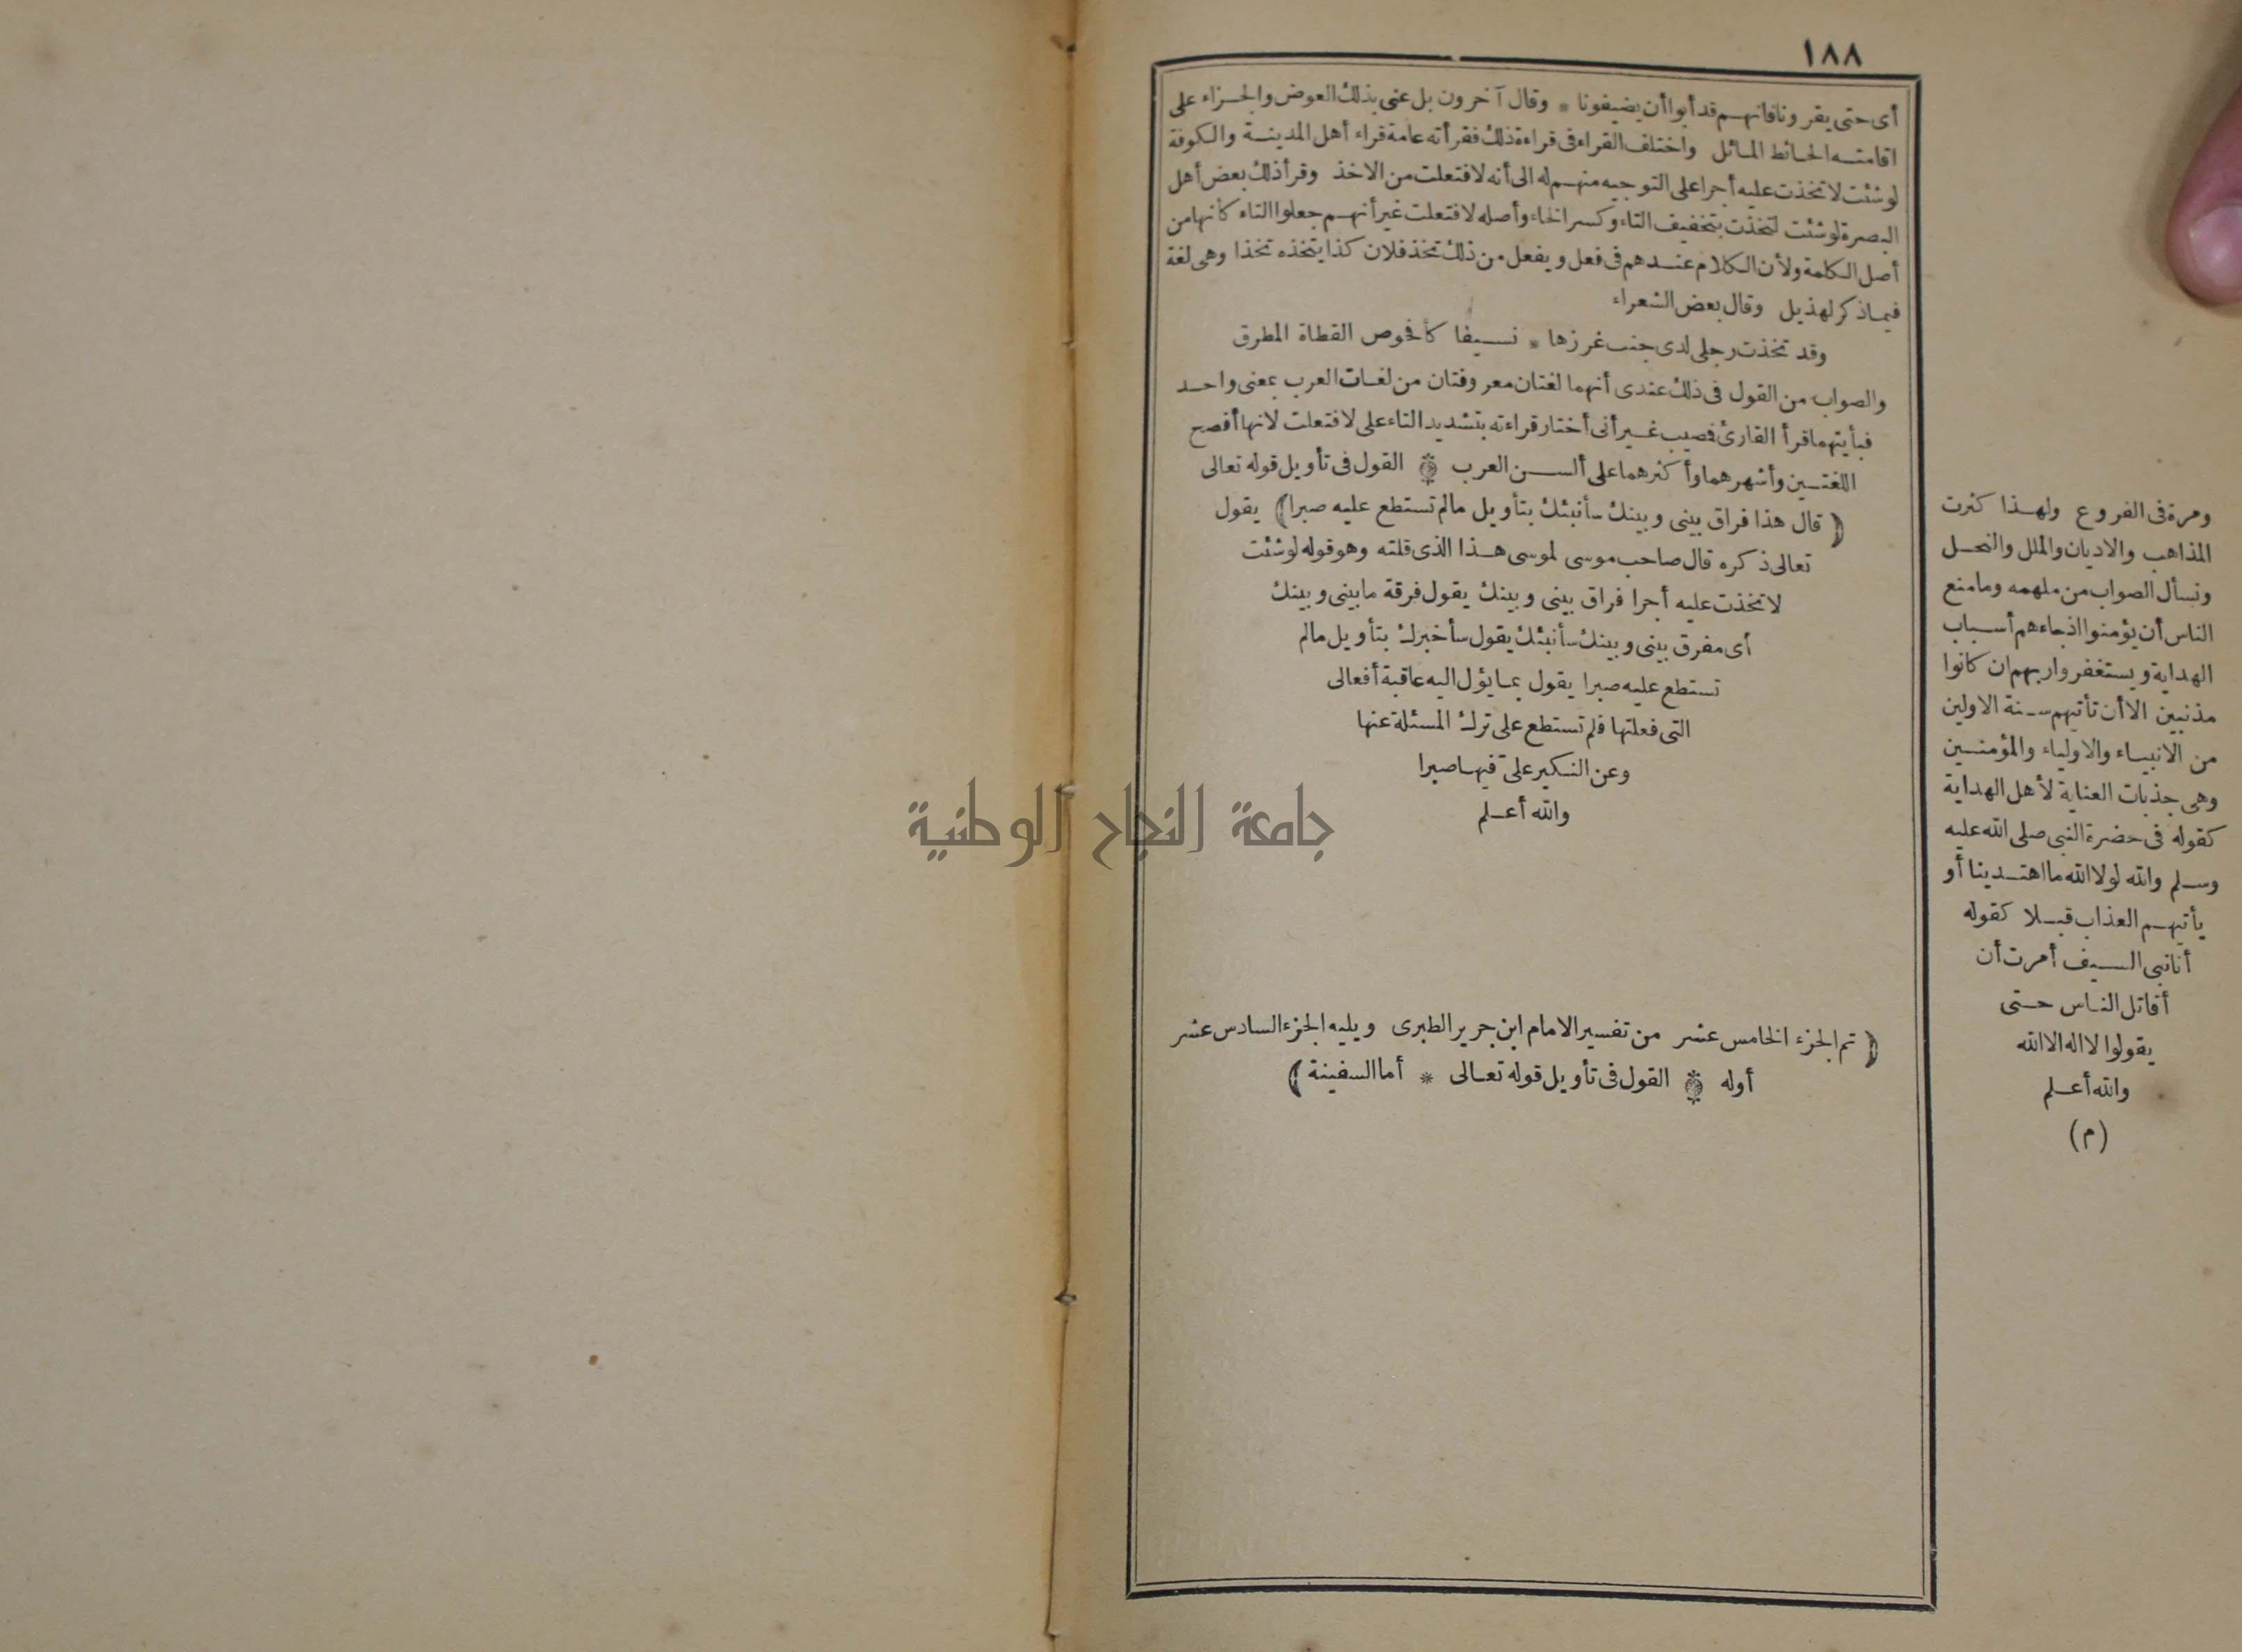 ١٨٨
أى حتى يقرونا فانهم قد أبوا أن يضيفونا * وقال آخرون بل عنى بذلك العوض والجزاء على
اقامته الحائط المائل واختلف القراء فى قراءة ذلك فقرأته عامة قراء أهل المدينة والكوفة
لو شئت لاتخذت عليه أجرا على التوجيه منهم له الى أنه لافتعلت من الاخذ وقرأ ذلك بعض أهل
البصرة لو شئت لتخذت بتخفيف التاء وكسر الخاء وأصله لافتعلت غير أنهم جعلوا التاء كأنها من
أصل الكلمة ولأن الكلام عندهم فى فعل ويفعل من ذلك تخذ فلان كذا يتخذه تخذا وهى لغة
فيما ذكر لهذيل وقال بعض الشعراء
وقد تخذت رجلى لدى جنب غرزها * نسيفا كأفحوص القطاة المطرق
والصواب من القول فى ذلك عندى أنهما لغتان معروفتان من لغات العرب بمعنى واحد
فبأيتهما قرأ القارئ فصيب غير أنى أختار قراءته بتشديد التاء على لافتعلت لانها أفصح
اللغتين وأشهرهما وأكثرهما على ألسن العرب ۞ القول فى تأويل قوله تعالى
﴿قال هذا فراق بينى وبينك سأنبئك بتأويل مالم تستطع عليه صبرا﴾ يقول
تعالى ذكره قال صاحب موسى لموسى هذا الذى قلته وهو قوله لو شئت
لاتخذت عليه أجرا فراق بينى وبينك يقول فرقة ما بينى وبينك
أى مفرق بينى وبينك سأنبئك يقول سأخبرك بتأويل مالم
تستطع عليه صبرا يقول بما يؤل اليه عاقبة أفعالى
التى فعلتها فلم تستطع على ترك المسئلة عنها
وعن النكير علىّ فيها صبرا
والله أعلم
﴿تم الجزء الخامس عشر من تفسير الامام ابن جرير الطبرى ويليه الجزء السادس عشر
أوله ۞ القول فى تأويل قوله تعالى * أما السفينة﴾
ومرة فى الفروع ولهذا كثرت
المذاهب والاديان والملل والنحل
ونسأل الصواب من ملهمه وما منع
الناس أن يؤمنوا اذ جاءهم أسباب
الهداية ويستغفروا ربهم ان كانوا
مذنبين الا أن تأتيهم سنة الاولين
من الانبياء والاولياء والمؤمنين
وهى جذبات العناية لأهل الهداية
كقوله فى حضرة النبى صلى الله عليه
وسلم والله لولا الله ما اهتدينا أو
يأتيهم العذاب قبلا كقوله
أنا نبى السيف أمرت أن
أقاتل الناس حتى
يقولوا لا اله الا الله
والله أعلم
(م)
جامعة النجاح الوطنية